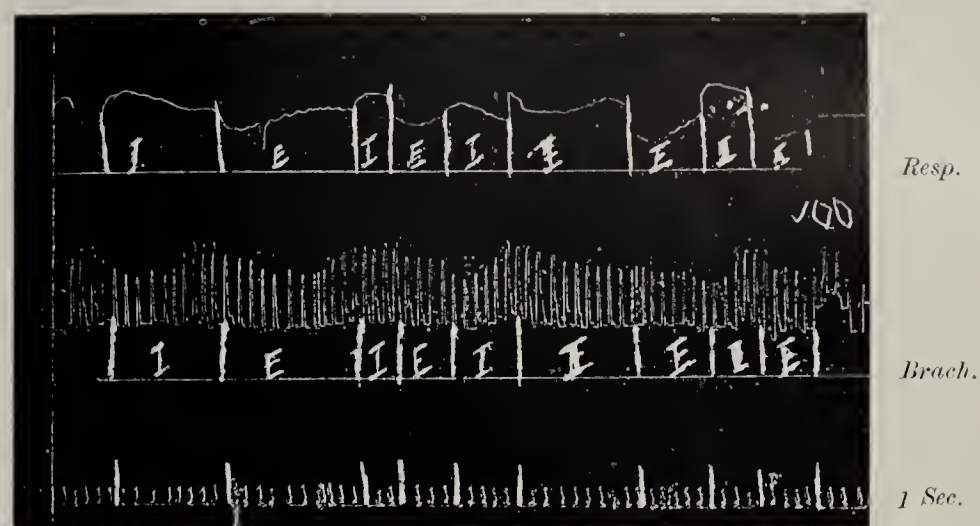 I E I E I I E I E
Resp.
100
I E I E I I E I E
Brach.
1 Sec.